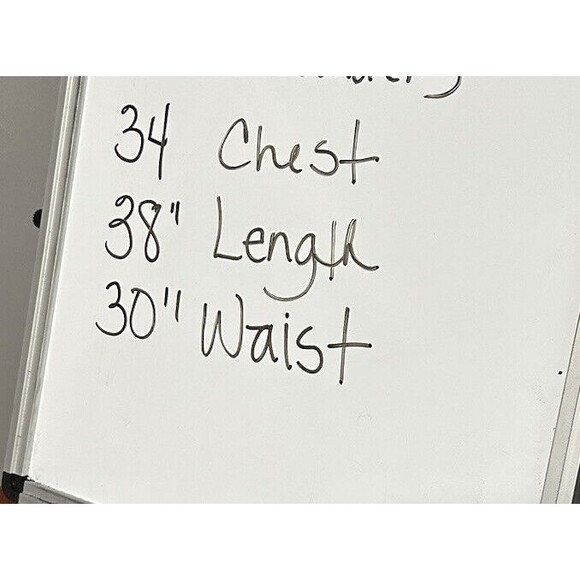 34 Chest
38" Length
30" Waist